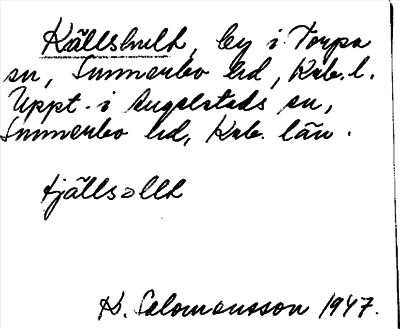 Källshult, by i Torpa
sn, Sunnerbo hd, Krb. l.
Uppt. i Angelstads sn,
Sunnerbo hd, Krb. län.
tjällsollt
K. Salomonsson 1947.